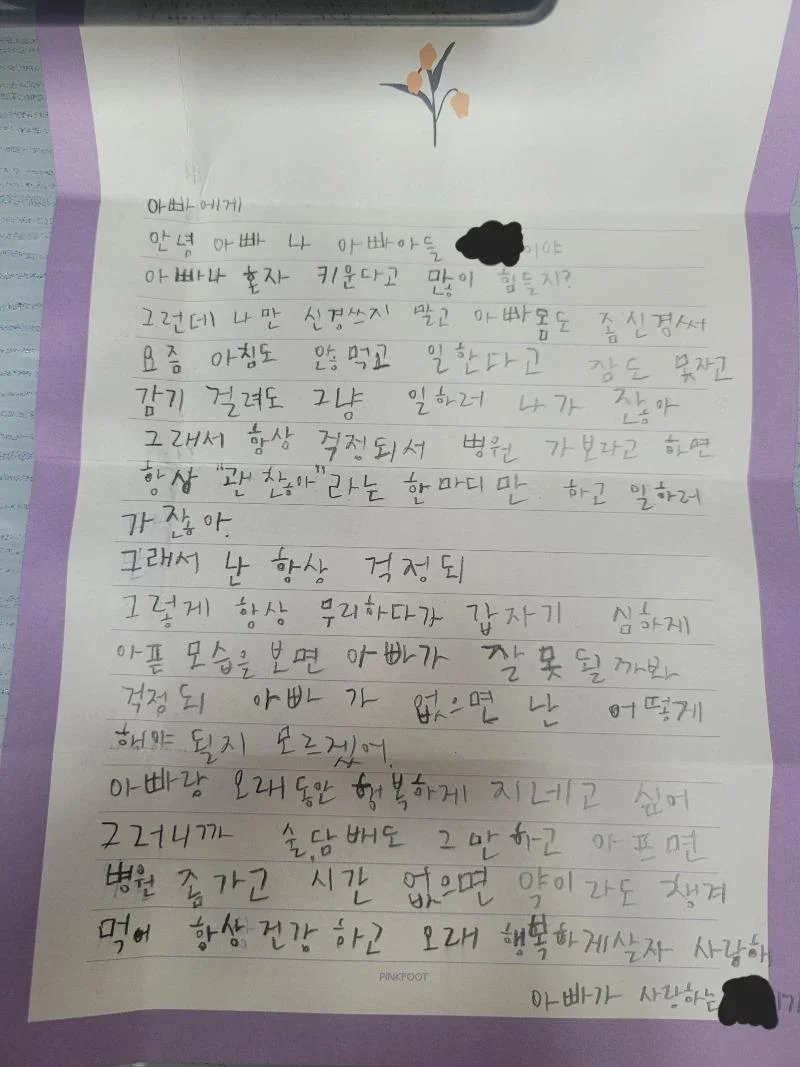 아빠에게
안녕 아빠 나 아빠아들 이야
아빠나 혼자 키운다고 많이 힘들지?
그런데 나만 신경쓰지 말고 아빠몸도 좀신경써
요즘 아침도 않먹고 일한다고 잠도 못자고
감기 걸려도 그냥 일하러 나가 잖아
그래서 항상 걱정되서 병원 가보라고 하면
항상 "괜찮아"라는 한마디만 하고 일하러
가 잖아.
그래서 난 항상 걱정되
그렇게 항상 무리하다가 갑자기 심하게
아픈 모습을 보면 아빠가 잘못될까봐
걱정되 아빠가 없으면 난 어떻게
해야 될지 모르겠어.
아빠랑 오래동안 행복하게 지네고 싶어
그러니까 술,담배도 그만하고 아프면
병원 좀가고 시간 없으면 약이라도 챙겨
먹어 항상건강 하고 오래 행복하게살자 사랑해
PINKFOOT
아빠가 사랑하는